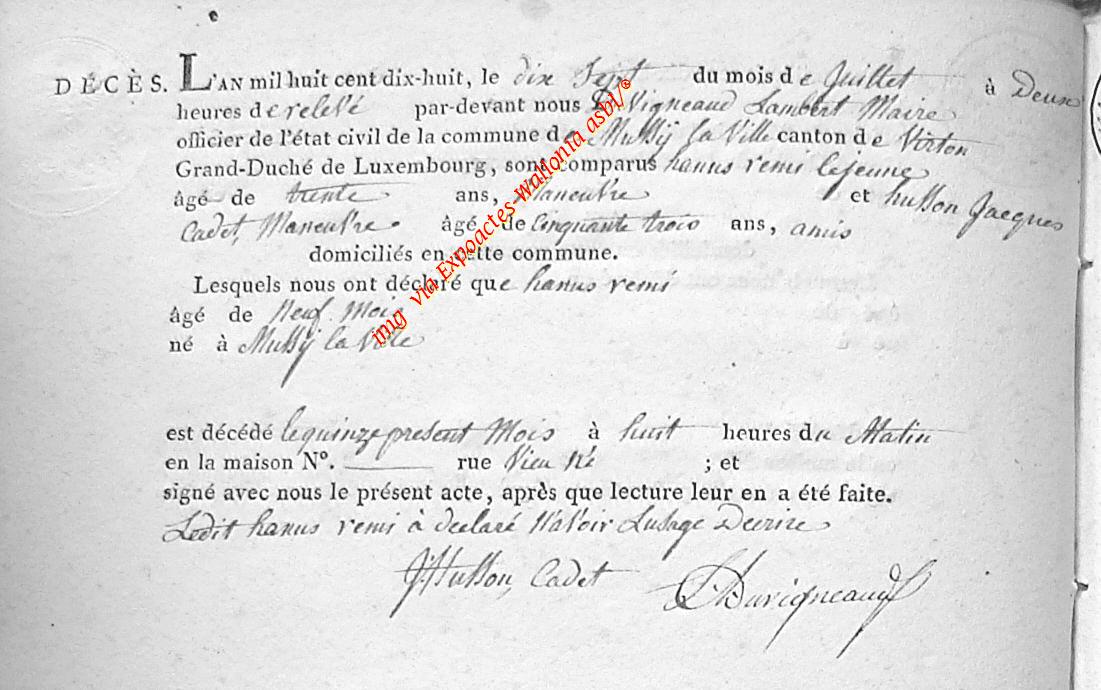 DÉCÈS. L'AN mil huit cent dix-huit, le dix Sept du mois de Juillet à Deux
heures de relevé par-devant nous Duvigneaud Lambert Maire
officier de l'état civil de la commune de Mussÿ la Ville canton de Virton
Grand-Duché de Luxembourg, sont comparus hanus remi lejeune
âgé de trente ans, Maneuvre et husson Jacques
Cadet, Maneuvre âgé de Cinquante trois ans, amis
domiciliés en cette commune.
Lesquels nous ont déclaré que hanus remi
âgé de Neuf Mois
né à Mussÿ la Ville
est décédé le quinze present Mois à huit heures du Matin
en la maison N°. rue ; et
signé avec nous le présent acte, après que lecture leur en a été faite.
Ledit hanus remi à declaré N'avoir Lusage Decrire
J: Husson, Cadet L. Duvigneaud
img via Expoactes-Wallonia asbl/®